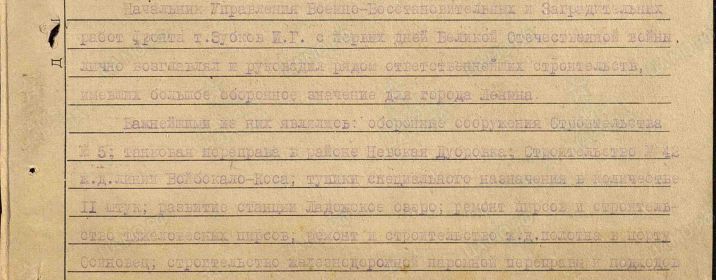 Начальник Управления Военно-Восстановительных и Заградительных
работ фронта т.Зубков И.Г. с первых дней Великой Отечественной войны,
лично возглавлял и руководил рядом ответственнейших строительств,
имевших большое оборонное значение для города Ленина
Важнейшими из них являлись: оборонные сооружения Строительства
№ 5; танковая переправа в районе Невская Дубровка; Строительство № 42
ж.д.линии Войбокало-Коса; тупики специального назначения в количестве
II штук; развитие станции Ладожское озеро; ремонт пирсов и строитель-
ство тяжеловесных пирсов; ремонт и строительство ж.д.полотна в порту
Осиновец; строительство железнодорожной паромной переправы и подходов